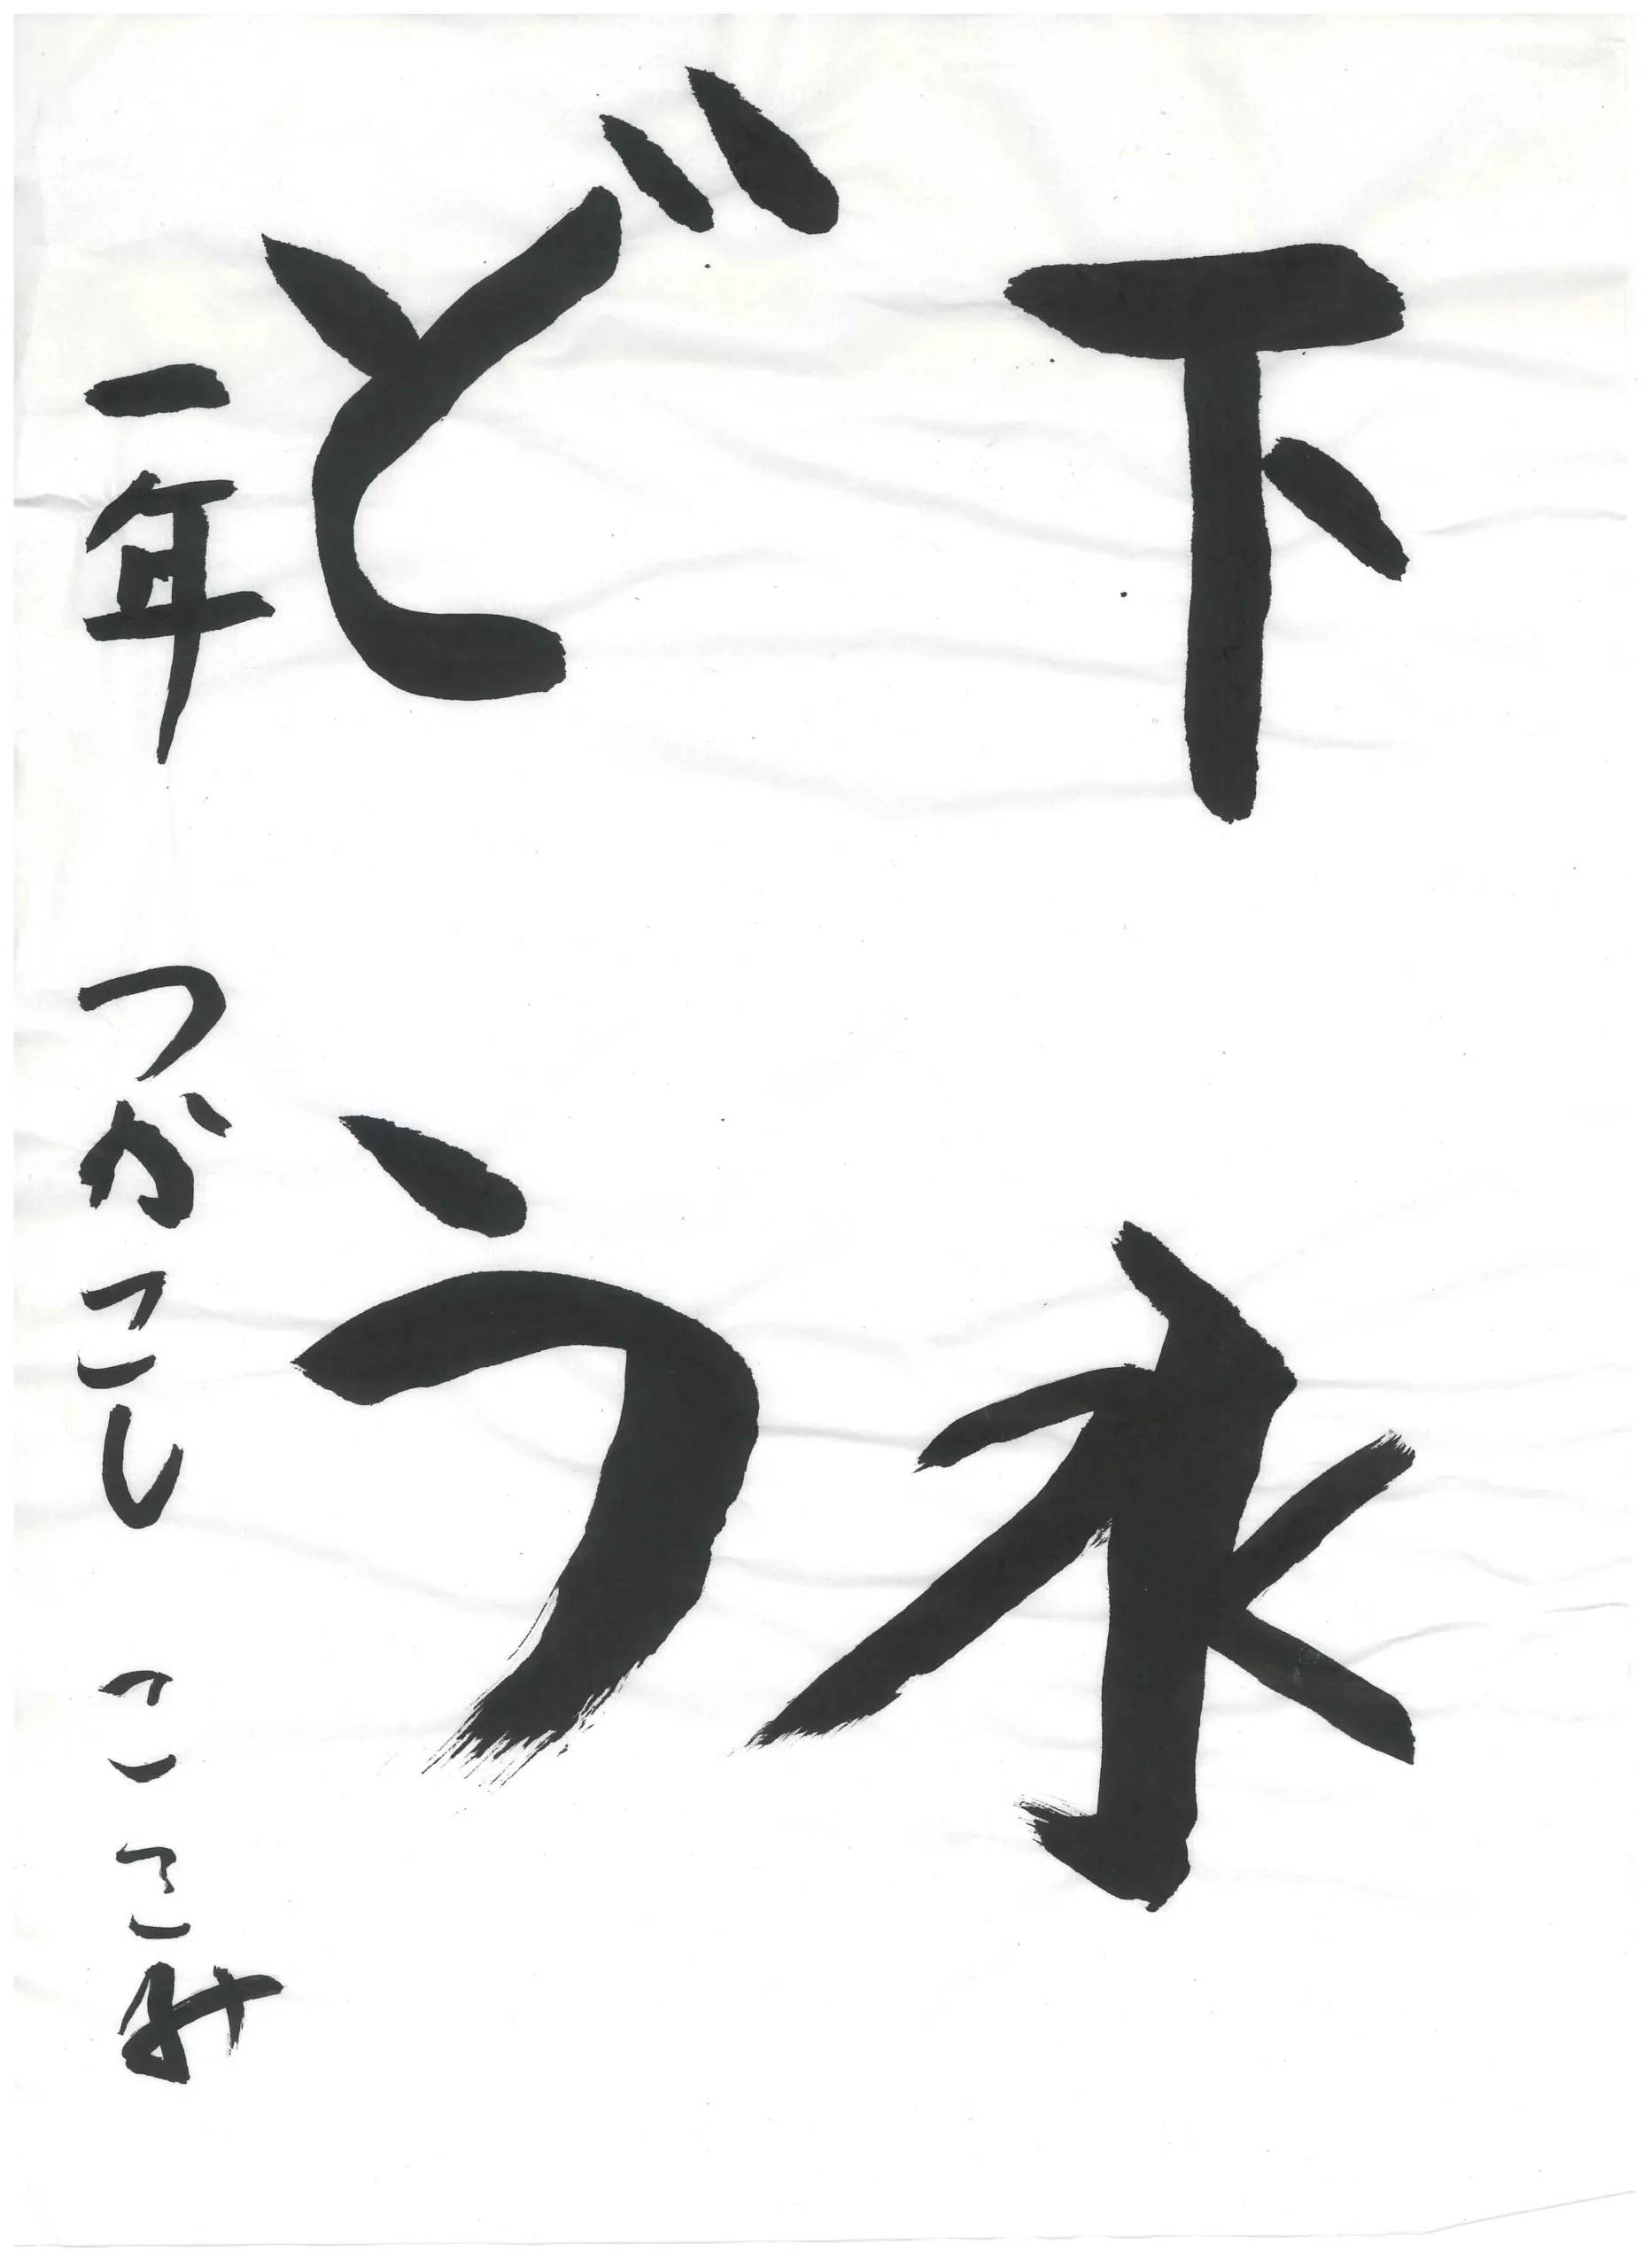 下水
どう
一年 つかこし こころみ